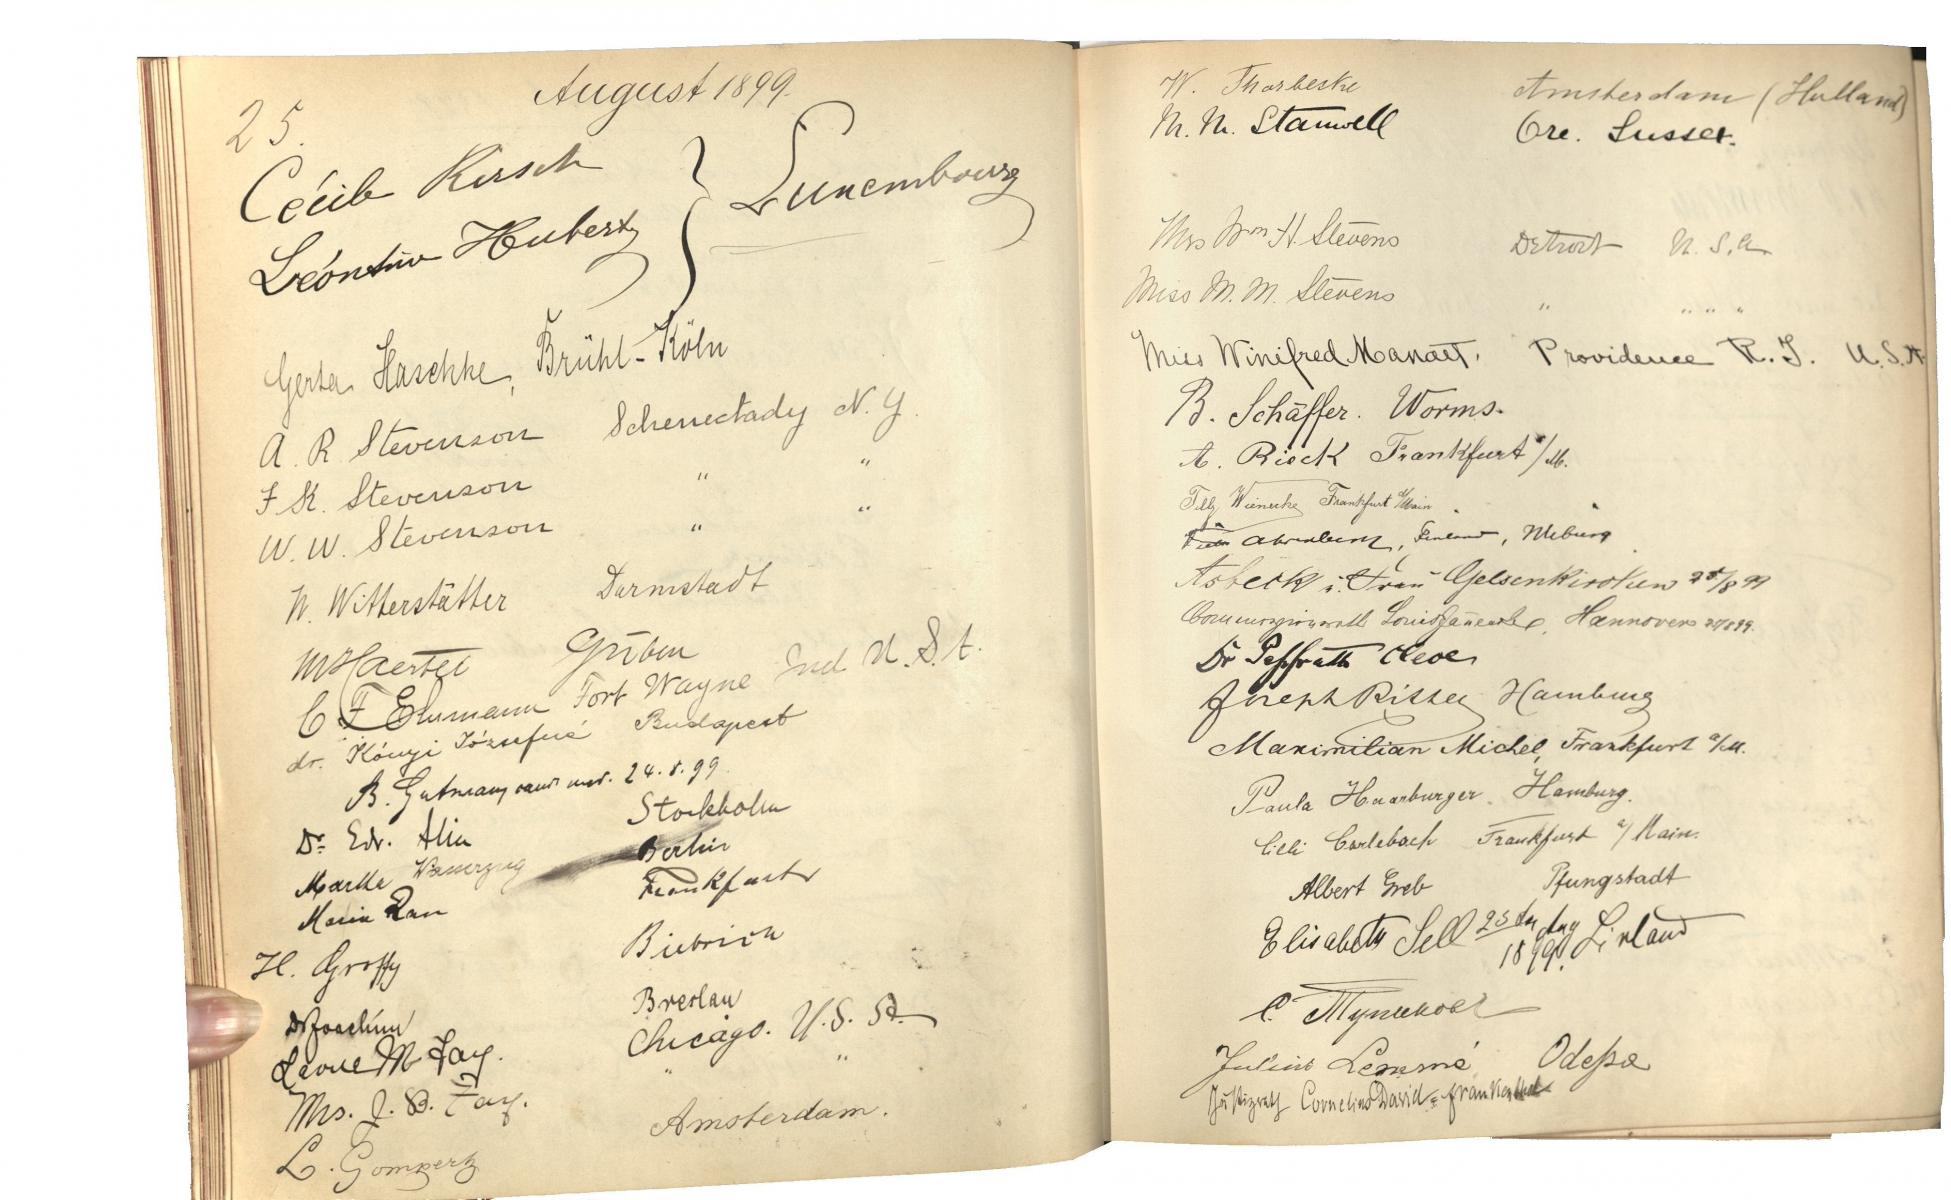 August 1899.
25.
Cécile Kirsch
Léontine Hubert } Luxembourg
Gerta Haschke, Brühl-Köln
A. R. Stevenson Schenectady N. Y.
F K. Stevenson " "
W. W. Stevenson " "
N. Witterstätter Darmstadt
M Haertel Guben
C F Ehrmann Fort Wayne Ind U. S. A.
dr. Kónyi Józsefné Budapest
B. Gutmann 24.8.99
Dr. Edv. Alin Stockholm
Martha Wasserzug Berlin
Maria Rau Frankfurt
H. Groffy Biebrich
Dr Joachim Breslau
Leone M Fay. Chicago. U. S. A.
Mrs. J. B. Fay. " "
L. Gompertz Amsterdam.
W. Thorbecke Amsterdam (Holland)
M. M. Stanwell Ore. Sussex.
Mrs Wm H. Stevens Detroit U. S. A.
Miss M. M. Stevens " " " "
Miss Winifred Manatt. Providence R. I. U. S. A.
B. Schäffer. Worms.
A. Rieck Frankfurt a/M.
Tilly Wienecke Frankfurt a/Main
Ahrenberg, Finland, Wiburg
Asbeck u. Frau Gelsenkirchen 25/8 99
Commerzienrath Louis Hannover 25/8 99.
Dr Cleve
Joseph Ritter Hamburg
Maximilian Michel, Frankfurt a/M.
Paula Haarburger. Hamburg.
Cilli Carlebach Frankfurt a/Main.
Albert Greb Pfungstadt
Elisabeth Sell 25ten Aug 1899. Livland
Julius Lemmé Odessa
Justizrath Cornelius David - Frankenthal